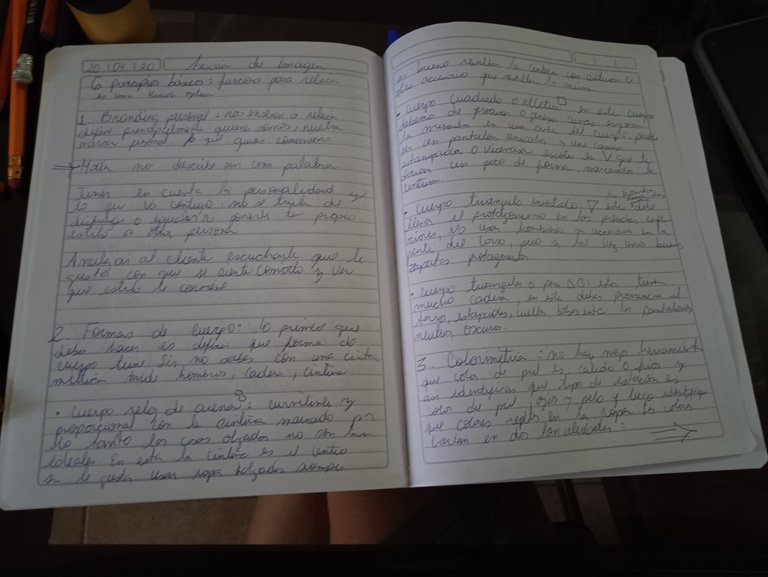 20 | 09 | 20 Asesor de Imagen
6 principios basicos: funcionan para relacion
es una tension optica
1. Branding personal: nos enseña a relacion
define principalmente quienes somos, nuestra
marca personal que quieres comunicar
no describe sin una palabra
Tener en cuenta la personalidad y
lo que va contigo no se trata de
disfrazar o igualar a ponerte tu propio
estilo a otra persona
Analizar al cliente escucharle que le
gusta con que se siente comoda y ver
que estilo le conviene
2. Formas de cuerpo: lo primero que
debes hacer es definir que forma de
cuerpo tiene Si no sabes con una cinta
metrica mide hombros, cadera, cintura
• Cuerpo reloj de arena 8: curvilineo y
proporcional con la cintura marcada por
lo tanto las cosas olgadas no son
ideales En esta la cintura es el centro
si le gusta usar ropa holgadas siempre
es bueno resaltar la cintura con cinturon u
otro accesorio que resalte la misma
• Cuerpo cuadrado o atletico □ en este cuerpo
debemos de procurar o generar curvas
la mayoria en una area del cuerpo, puede
ser un pantalon ancho y una camisa
estampada o viceversa escotes en V que te
daran un poco de forma marcando la
cintura
• Cuerpo triangulo invertido: ▽ este debe
llevar el protagonismo en las prendas infe-
riores, No usar hombreras ya accesorios en la
parte del torso, pero si tal vez unos buenos
zapatos protagonistas
• Cuerpo triangulo o pera △: esta tienen
mucho cadera, en este debes prominar el
torso, estampados, cuellos botes etc. los pantalones
neutros, oscuros.
3. Colorimetria: no hay mejor herramienta
que color de piel es calido o frios y
asi identificas que tipo de estacion es
color de piel, ojos y pelo y luego identificar
que colores
varian en dos tonalidades: